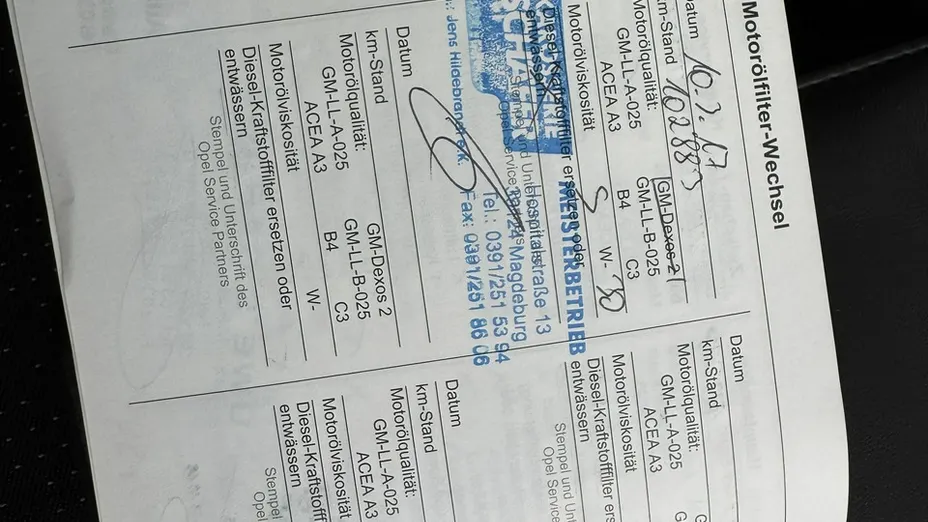 Motorölfilter-Wechsel
Datum 10.7.17
km-Stand 102883
Motorölqualität: GM-Dexos 2
GM-LL-A-025 GM-LL-B-025
ACEA A3 B4 C3
Motorölviskosität 5 W- 30
Diesel-Kraftstofffilter ersetzen oder
entwässern
Stempel und Unterschrift des
Opel Service Partners
MEISTERBETRIEB
Hospitalstraße 13
Magdeburg
Tel.: 0391/251 53 94
Fax: 0391/251 86 06
Jens Hildebrandt
Datum
km-Stand
Motorölqualität: GM-Dexos 2
GM-LL-A-025 GM-LL-B-025
ACEA A3 B4 C3
Motorölviskosität W-
Diesel-Kraftstofffilter ersetzen oder
entwässern
Stempel und Unterschrift des
Opel Service Partners
Datum
km-Stand
Motorölqualität:
GM-LL-A-025
ACEA A3
Motorölviskosität
Diesel-Kraftstofffilter ers
entwässern
Stempel und Un
Opel Serv
Datum
km-Stand
Motorölqualität:
GM-LL-A-025
ACEA A3
Motorölviskosität
Diesel-Kraftstofff
entwässern
Stempel
Op